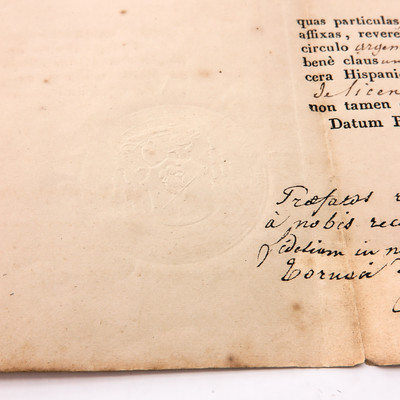 quas particulas
affixas, revere
circulo argen
benè claus un
cera Hispani
de licen
non tamen
Datum R
Præfatas r
à nobis rec
fidelium in n